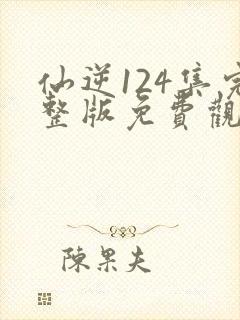 仙逆124集完
整版免費觀
陳果夫